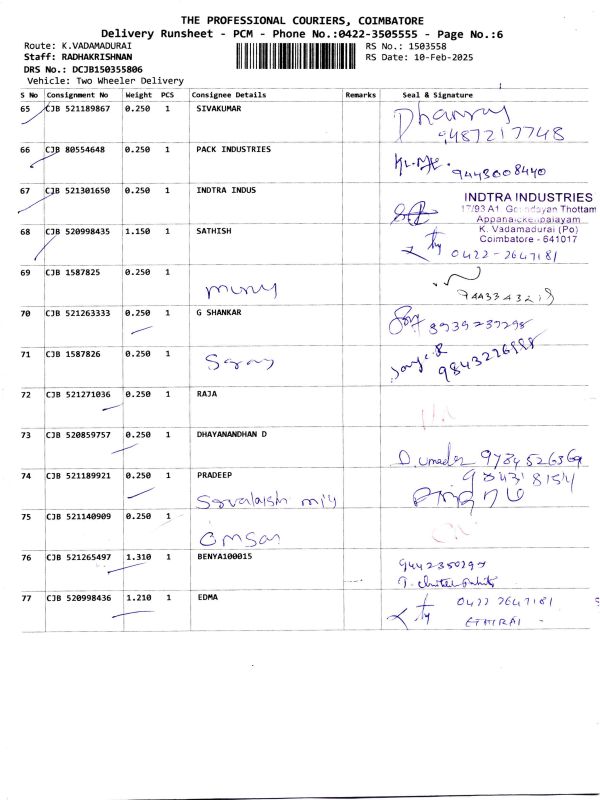 THE PROFESSIONAL COURIERS, COIMBATORE
Delivery Runsheet - PCM - Phone No.:0422-3505555 - Page No.:6
Route: K.VADAMADURAI
RS No.: 1503558
Staff: RADHAKRISHNAN
RS Date: 10-Feb-2025
DRS No.: DCJB150355806
Vehicle: Two Wheeler Delivery
S No Consignment No Weight PCS Consignee Details Remarks Seal & Signature
65 CJB 521189867 0.250 1 SIVAKUMAR
9487217748
66 CJB 80554648 0.250 1 PACK INDUSTRIES
9443008440
67 CJB 521301650 0.250 1 INDTRA INDUS
INDTRA INDUSTRIES
17/93 A1
Thottam
Appanaickenpalayam
K. Vadamadurai (Po)
Coimbatore - 641017
68 CJB 520998435 1.150 1 SATHISH
0422-2647181
69 CJB 1587825 0.250 1
70 CJB 521263333 0.250 1 G SHANKAR
71 CJB 1587826 0.250 1
72 CJB 521271036 0.250 1 RAJA
73 CJB 520859757 0.250 1 DHAYANANDHAN D
74 CJB 521189921 0.250 1 PRADEEP
75 CJB 521140909 0.250 1
76 CJB 521265497 1.310 1 BENYA100015
77 CJB 520998436 1.210 1 EDMA
0422 2647181